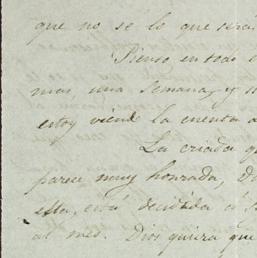 que no se lo que será
Pienso en todo e
mas, una semana, y s
estoy viend la cuenta a
La criada q
parece muy honrada, D
esta, está decidida á s
al mes. Dios quiera que